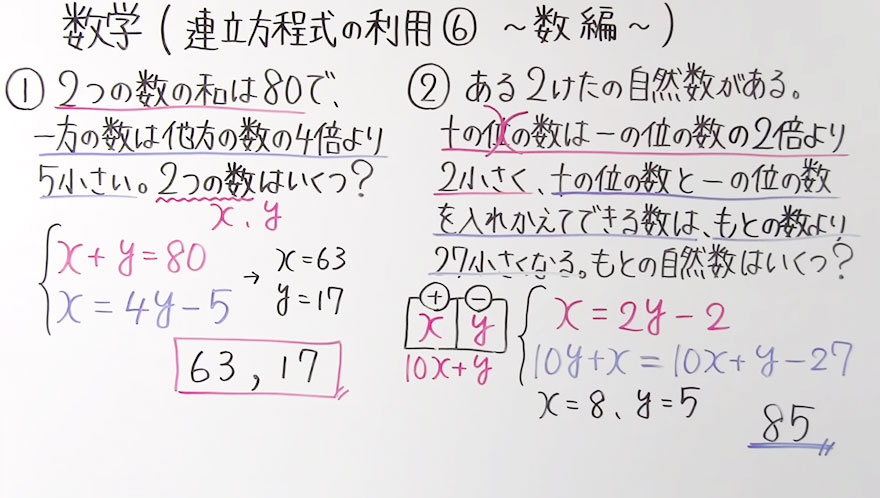 数学(連立方程式の利用⑥ ～数編～)
① 2つの数の和は80で、
一方の数は他方の数の4倍より
5小さい。2つの数はいくつ?
x、y
x+y=80
x=4y-5
→ x=63
y=17
63, 17
② ある2けたの自然数がある。
十の位の数は一の位の数の2倍より
2小さく、十の位の数と一の位の数
を入れかえてできる数は、もとの数より
27小さくなる。もとの自然数はいくつ?
⊕ ⊖
x y
10x+y
x=2y-2
10y+x=10x+y-27
x=8、y=5
85